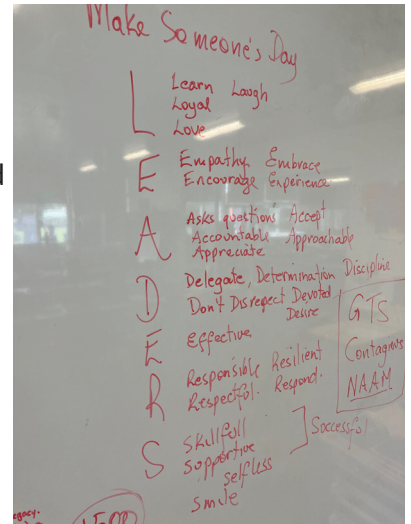 Make Someone's Day
L
Learn Laugh
Loyal
Love
E
Empathy Embrace
Encourage Experience
A
Asks question's Accept
Accountable Approachable
Appreciate
D
Delegate, Determination Discipline
Don't Disrepect Devoted
Desire
E
Effective
R
Responsible Resilient
Respectful. Respond.
S
Skillfull
Supportive
selfless
Smile
Successful
GTS
Contagious
NAAM
egacy.